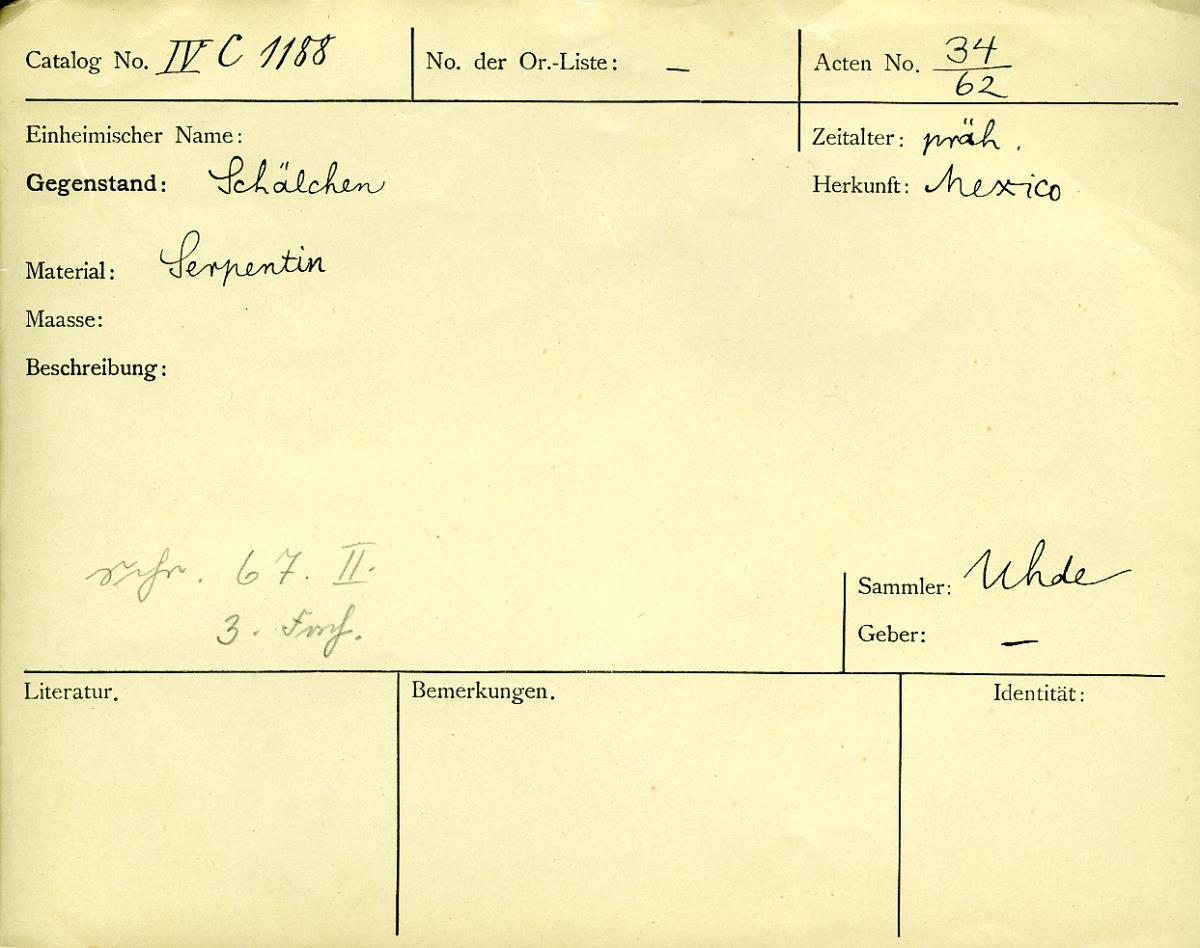 Catalog No. IV C 1188
No. der Or.-Liste: —
Acten No. 34/62
Einheimischer Name:
Zeitalter: präh.
Gegenstand: Schälchen
Herkunft: Mexico
Material: Serpentin
Maasse:
Beschreibung:
schr. 67. II.
3. Fach.
Sammler: Uhde
Geber: —
Literatur.
Bemerkungen.
Identität: